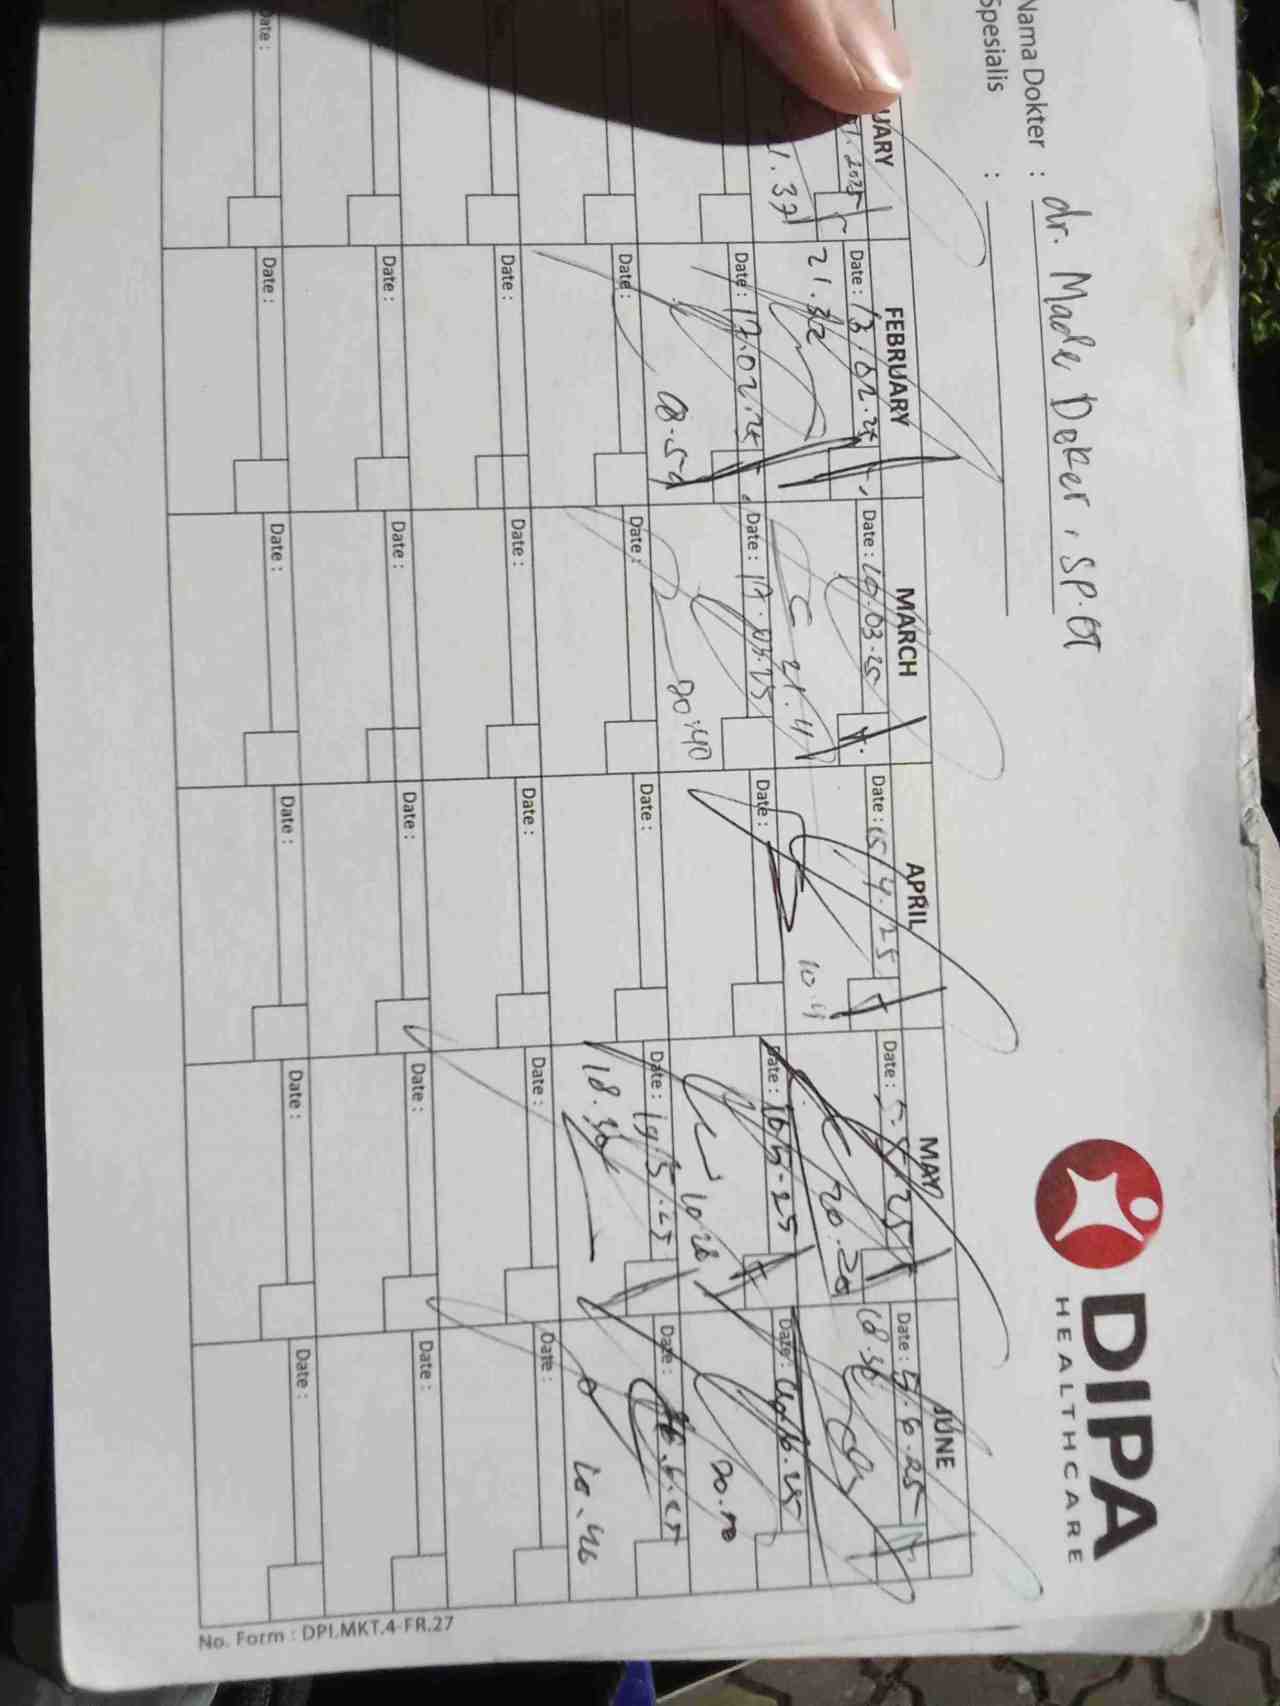 DIPA
HEALTHCARE
Nama Dokter : dr. Made Doker, SP.OT
Spesialis :
UARY FEBRUARY MARCH APRIL MAY JUNE
2025 Date : 13.02.25 Date : 10.03.25 Date : 15.4.25 Date : 5.5.25 Date : 5.6.25
1.37 21.32 21.41 10.4 20.20 18.36
Date : 17.02.25 Date : 17.03.25 Date : Date : 16.5.25 Date :
08.50 20:40 10.28 20.10
Date : Date : Date : Date : 19.5.25 Date :
18.36 20.46
Date : Date : Date : Date : Date :
Date : Date : Date : Date : Date :
Date : Date : Date : Date : Date : Date :
No. Form : DPI.MKT.4-FR.27